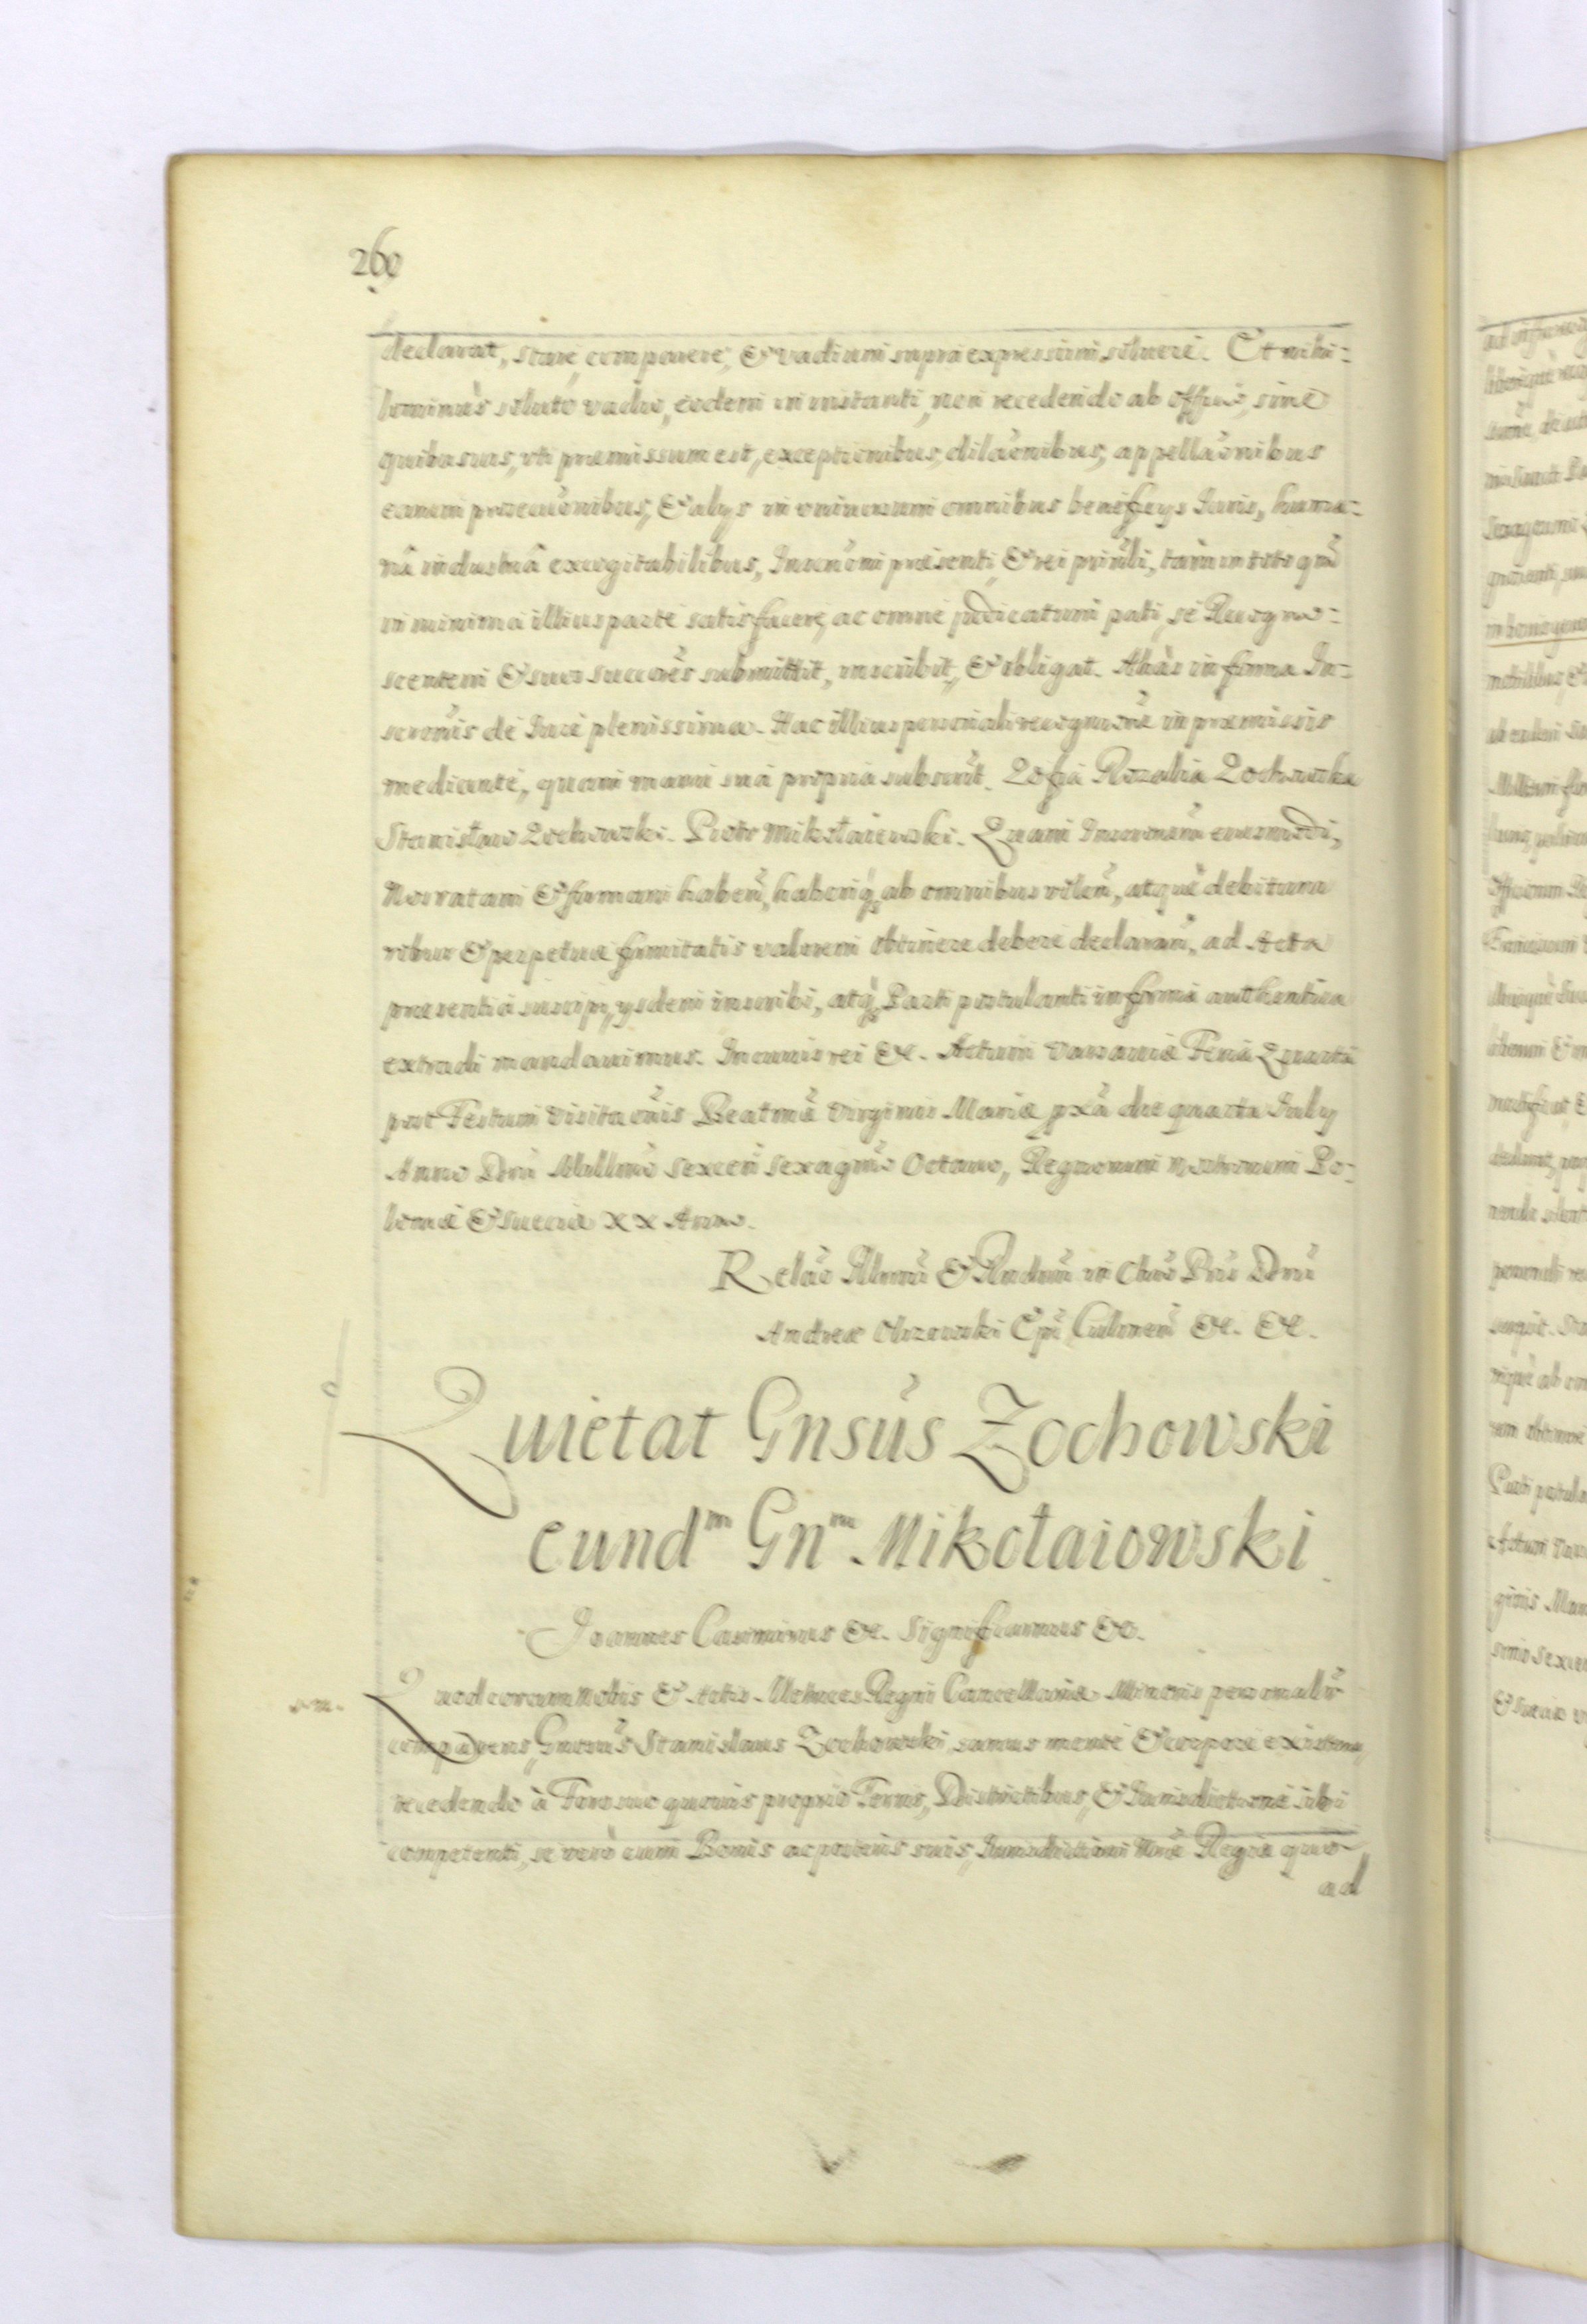 260
declarat, stare, comparere, & vadium supra expressum, soluere. Et nihi-
lominus soluto vadio, eodem in instanti, non recedendo ab officio, sine
quibusuis, vti præmissum est, exceptionibus, dilaōnibus, appellaōnibus
earum prosecuōnibus, & alys in vniuersum omnibus beneficys Iuris, huma-
nâ industriâ excogitabilibus, Inscrōni præsenti, & rei prinli, tam in toto qm̃
in minima illius parte satisfacere, ac omne judicatum pati, se Recogno-
scentem & suos succōres submittit, inscribit, & obligat. Aliàs in forma In-
scrōnis de Iure plenissima. Hac illius personali recognitōne in præmissis
mediante, quam manu sua propria subscrit. Zofia Rozalia Zochowska
Stanisław Zochowski. Piotr Mikołaiewski. Quam Inscrōnem eiusmodi,
Nos ratam & firmam haben̄, haberiq̨ ab omnibus volen̄, atque debitum
robur & perpetuæ firmitatis valorem obtinere debere declaran̄, ad Acta
præsentia suscipi, ysdem inscribi, atq̨ Parti postulanti in forma authentica
extradi mandauimus. In cuius rei &c. Actum Varsauiæ Feria Quarta
post Festum Visitaōnis Beatmæ Virginis Mariæ pxā die quarta July
Anno Dnī Millmo sexcen̄ sexagmo Octauo, Regnorum Nostrorum Po-
loniæ & Sueciæ XX Anno.
Relāo Illmi & Rndmi in Chro Pris Dnī
Andreæ Olszowski Epī Culmen̄ &c. &c.
Quietat Gnsūs Zochowski
eundm Gnm Mikołaiowski
Joannes Casimirus &c. Significamus &c.
Quod coram Nobis & Actis Metrices Regni Cancellariæ Minoris personalr̄
comparens, Gnerosūs Stanislaus Zochowski, sanus mente & corpore existens,
recedendo à Foro suo quouis proprio Terris, Districtibus, & Iurisdictione sibi
competenti, se verò cum Bonis ac posteris suis, Iurisdictioni Nrǣ Regiæ quo-
ad